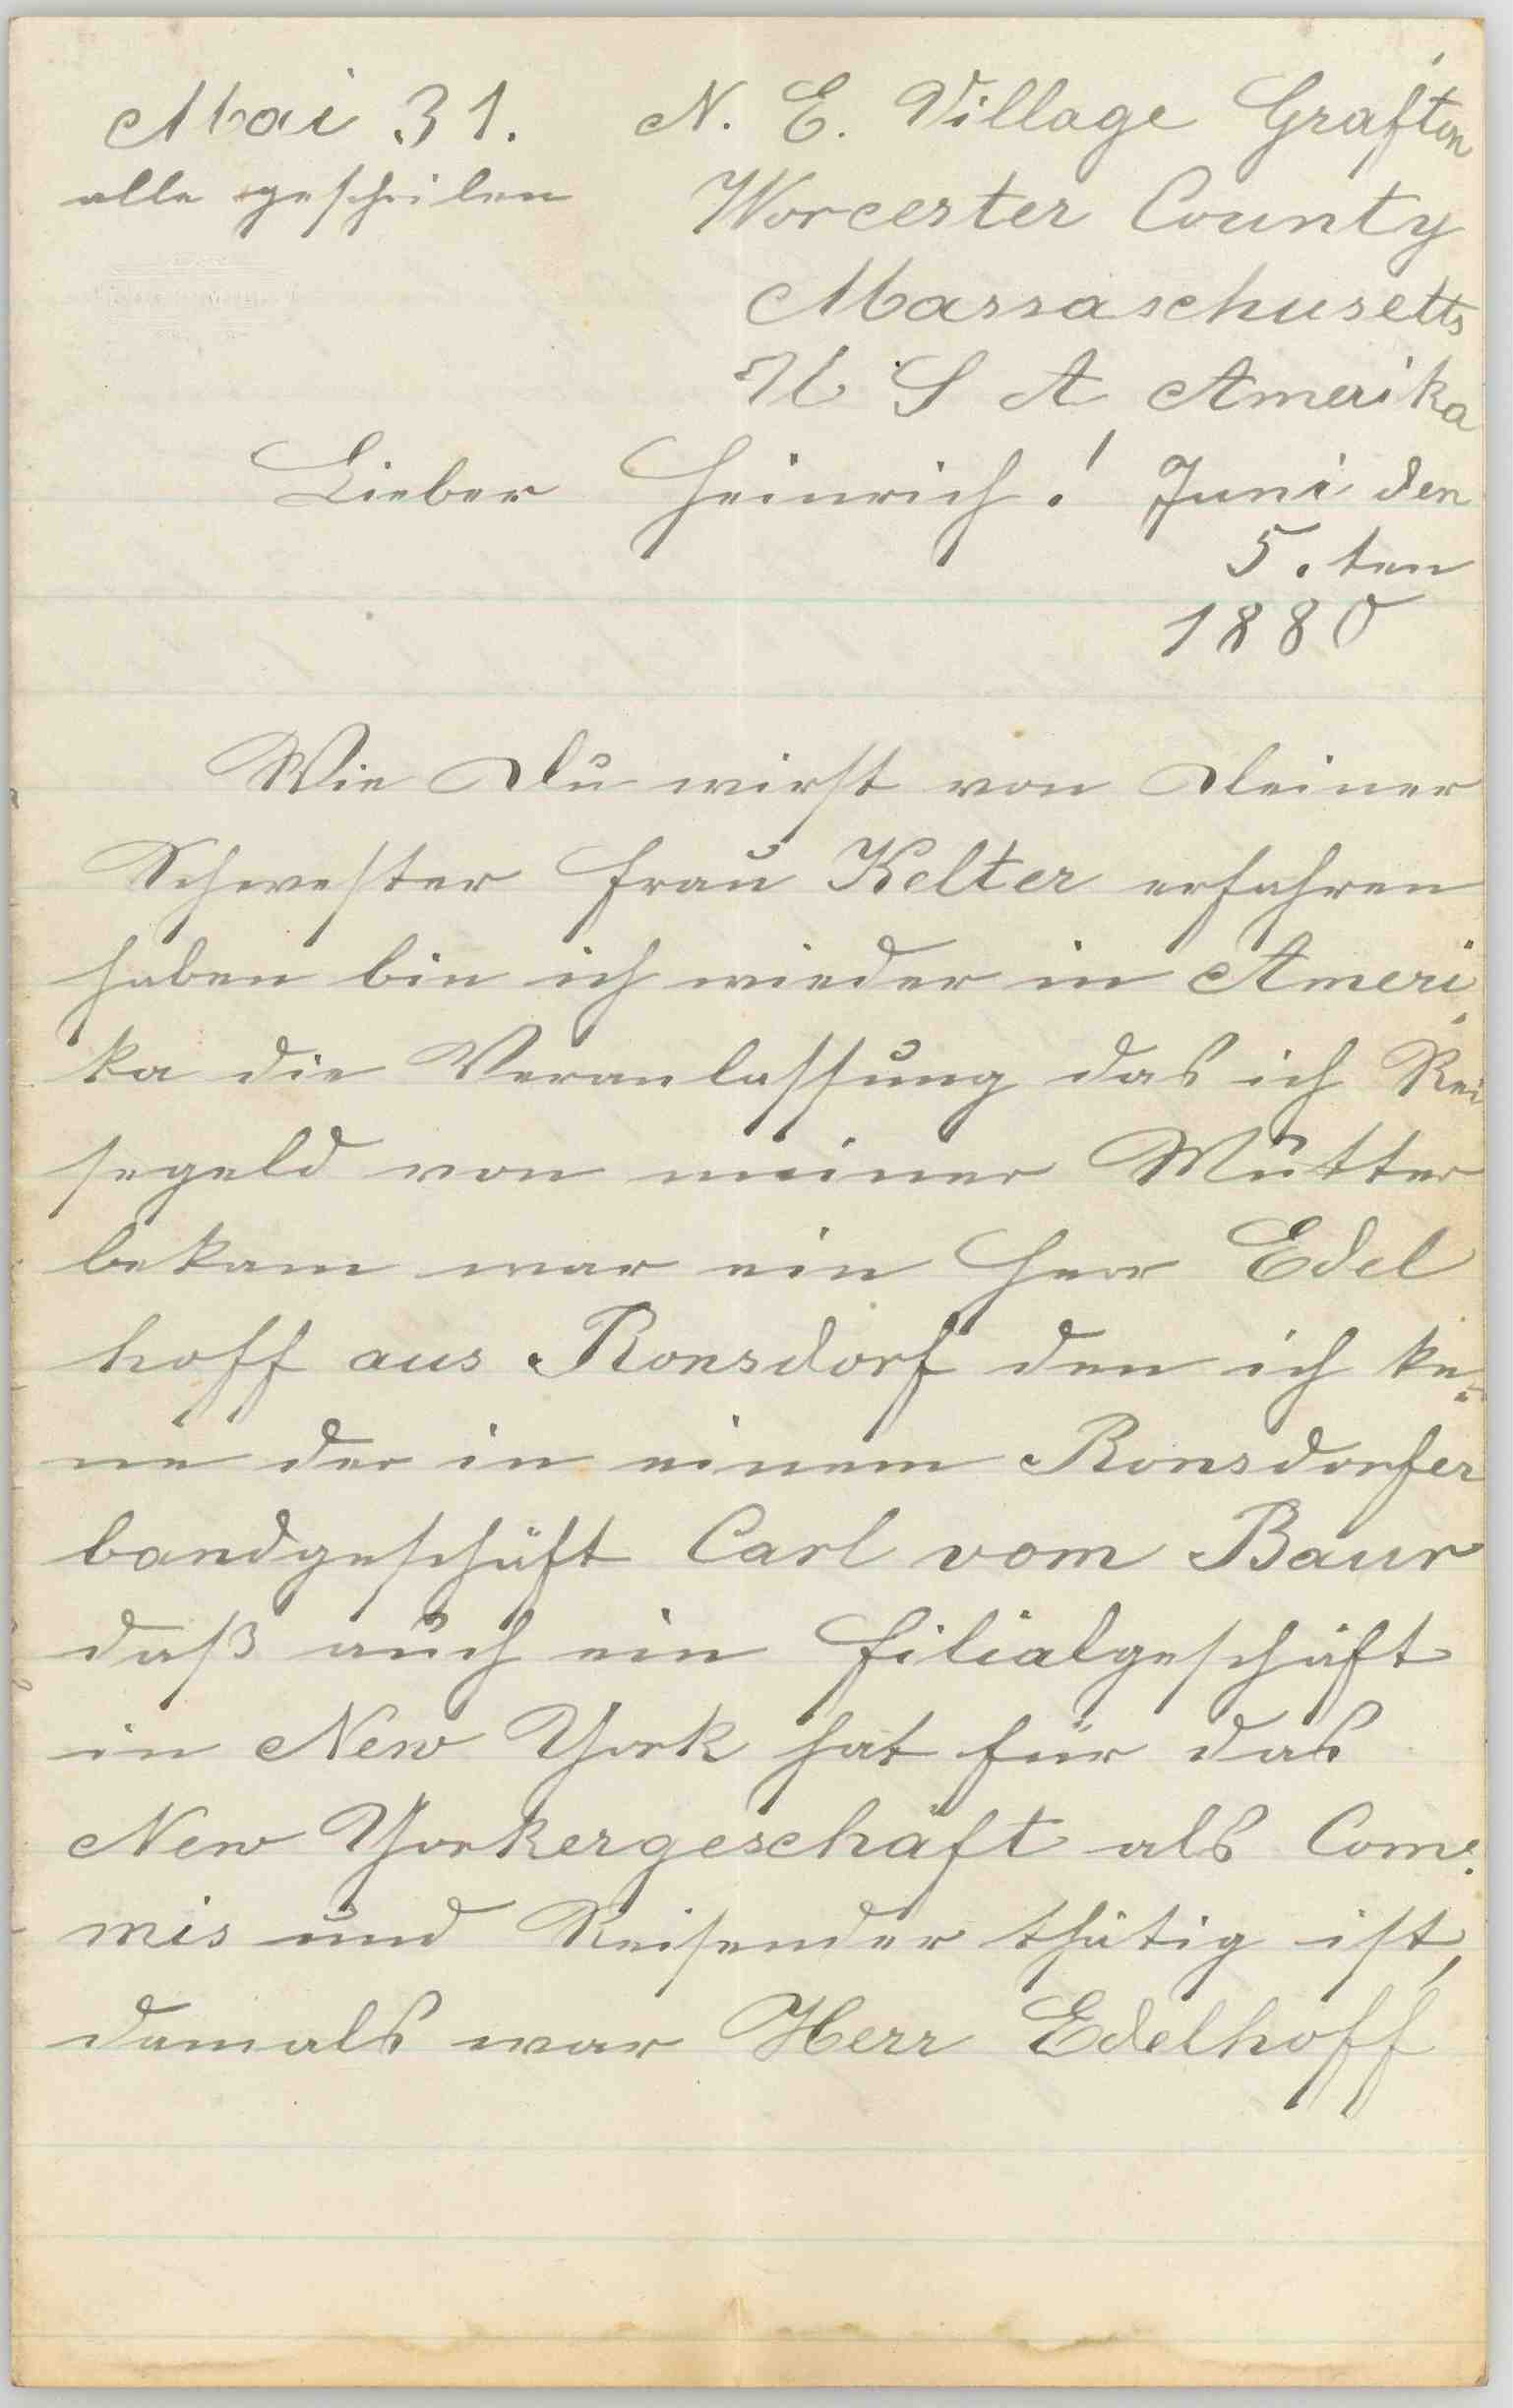 Mai 31. N. E. Village Grafton
alle geschrieben Worcester County
Massaschusetts
U S A Amerika
Lieber Heinrich! Juni den
5.ten
1880
Wie Du wirst von Deiner
Schwester Frau Kelter erfahren
haben bin ich wieder in Ameri
ka die Veranlassung das ich Rei
segeld von meiner Mutter
bekam war ein Herr Edel
hoff aus Ronsdorf den ich ke=
ne der in einem Ronsdorfer
bandgeschäft Carl vom Baur
daß auch ein Filialgeschäft
in New York hat für das
New Yorkergeschäft als Com=
mis und Reisender thätig ist,
damals war Herr Edelhoff